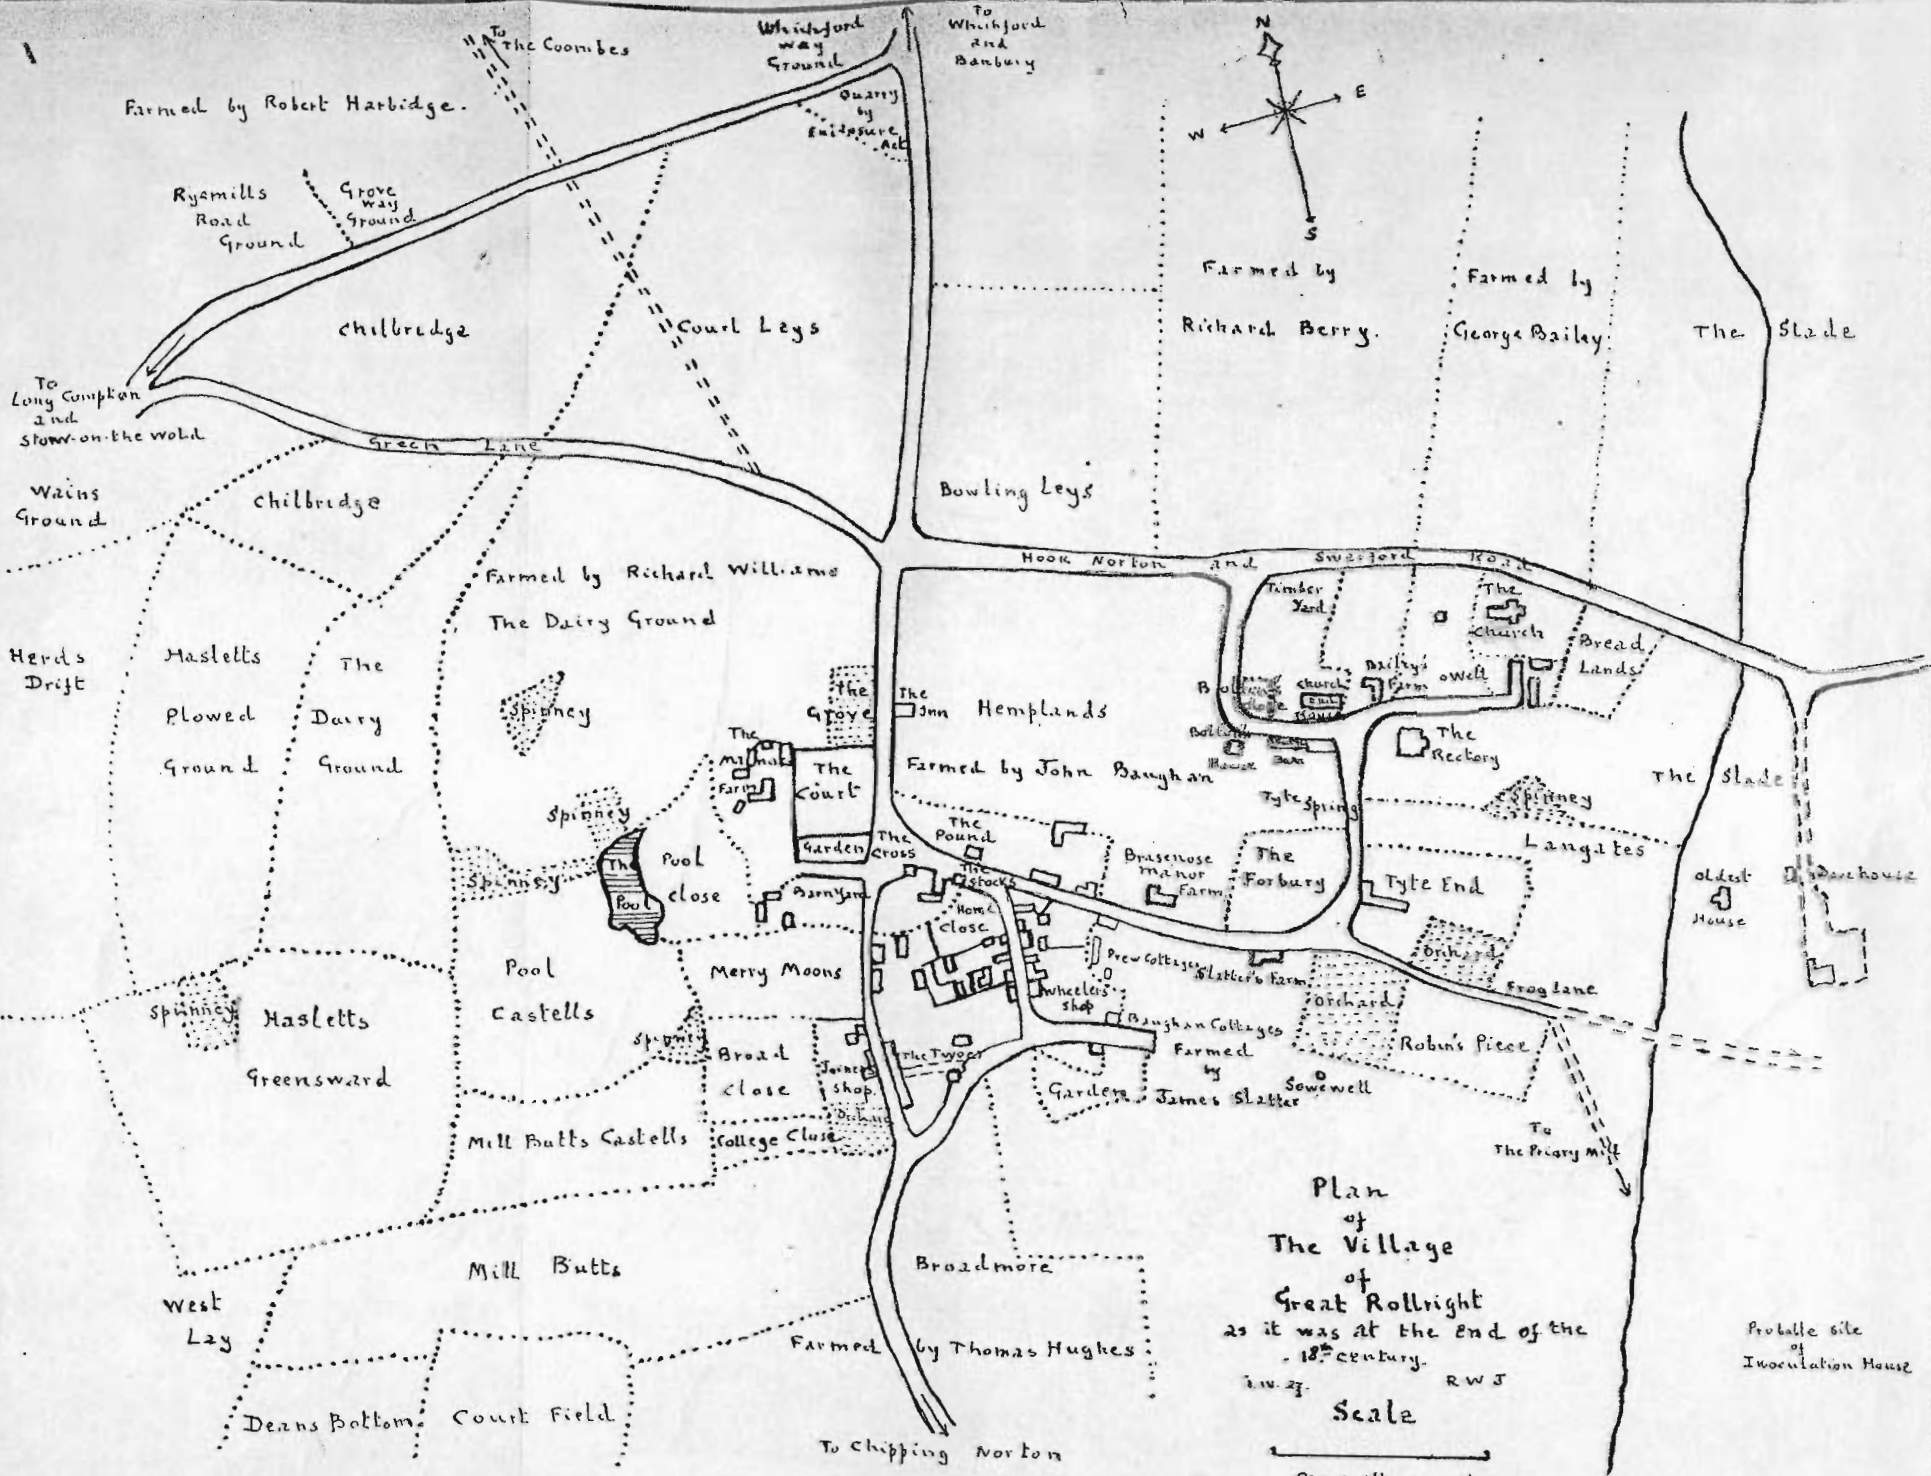 To
The Coombes
Whichford
way
Ground
To
Whichford
and
Banbury
N
E
W
S
Farmed by Robert Harbidge.
Quarry
by
Enclosure
Act
Ryemills
Road
Ground
Grove
way
Ground
Chilbridge
Court Leys
Farmed by
Richard Berry.
Farmed by
George Bailey
The Slade
To
Long Compton
and
Stow-on-the Wold
Green Lane
Wains
Ground
Chilbridge
Bowling Leys
Hook Norton and Swerford Road
Farmed by Richard Williams
The Dairy Ground
Timber
Yard
The
Church
Bread
Lands
Herds
Drift
Hasletts
Plowed
Ground
The
Dairy
Ground
Spinney
The
Grove
The
Inn
Hemplands
Church
End
Bailey's
Farm
Well
House
Barn
The
Rectory
The
Manor
Farm
The
Court
Farmed by John Baughan
The Slade
Spinney
Tyte Spring
Spinney
Garden
The
Cross
The
Pound
The
Stocks
Langates
The
Pool
Pool
Close
Spinney
Barnyard
Brasenose
Manor
Farm
The
Forbury
Tyte End
Oldest
House
Dovehouse
Home
Close
Orchard
Pool
Castells
Merry Moons
Prew Cottages
Slatter's Farm
Frog Lane
Spinney
Hasletts
Greensward
Wheelers
Shop
Orchard
Baughan Cottages
Robin's Piece
Spinney
Broad
Close
Joiners
Shop
The Tyoes
Farmed
by
James Slatter
Gardens
Sowewell
Orchard
Mill Butts Castells
College Close
To
The Priory Mill
Plan
of
The Village
of
Great Rollright
as it was at the end of the
18th century.
R W J
Scale
Mill Butts
Broadmore
West
Lay
Farmed by Thomas Hughes
Probable site
of
Inoculation House
Deans Bottom
Court Field
To Chipping Norton